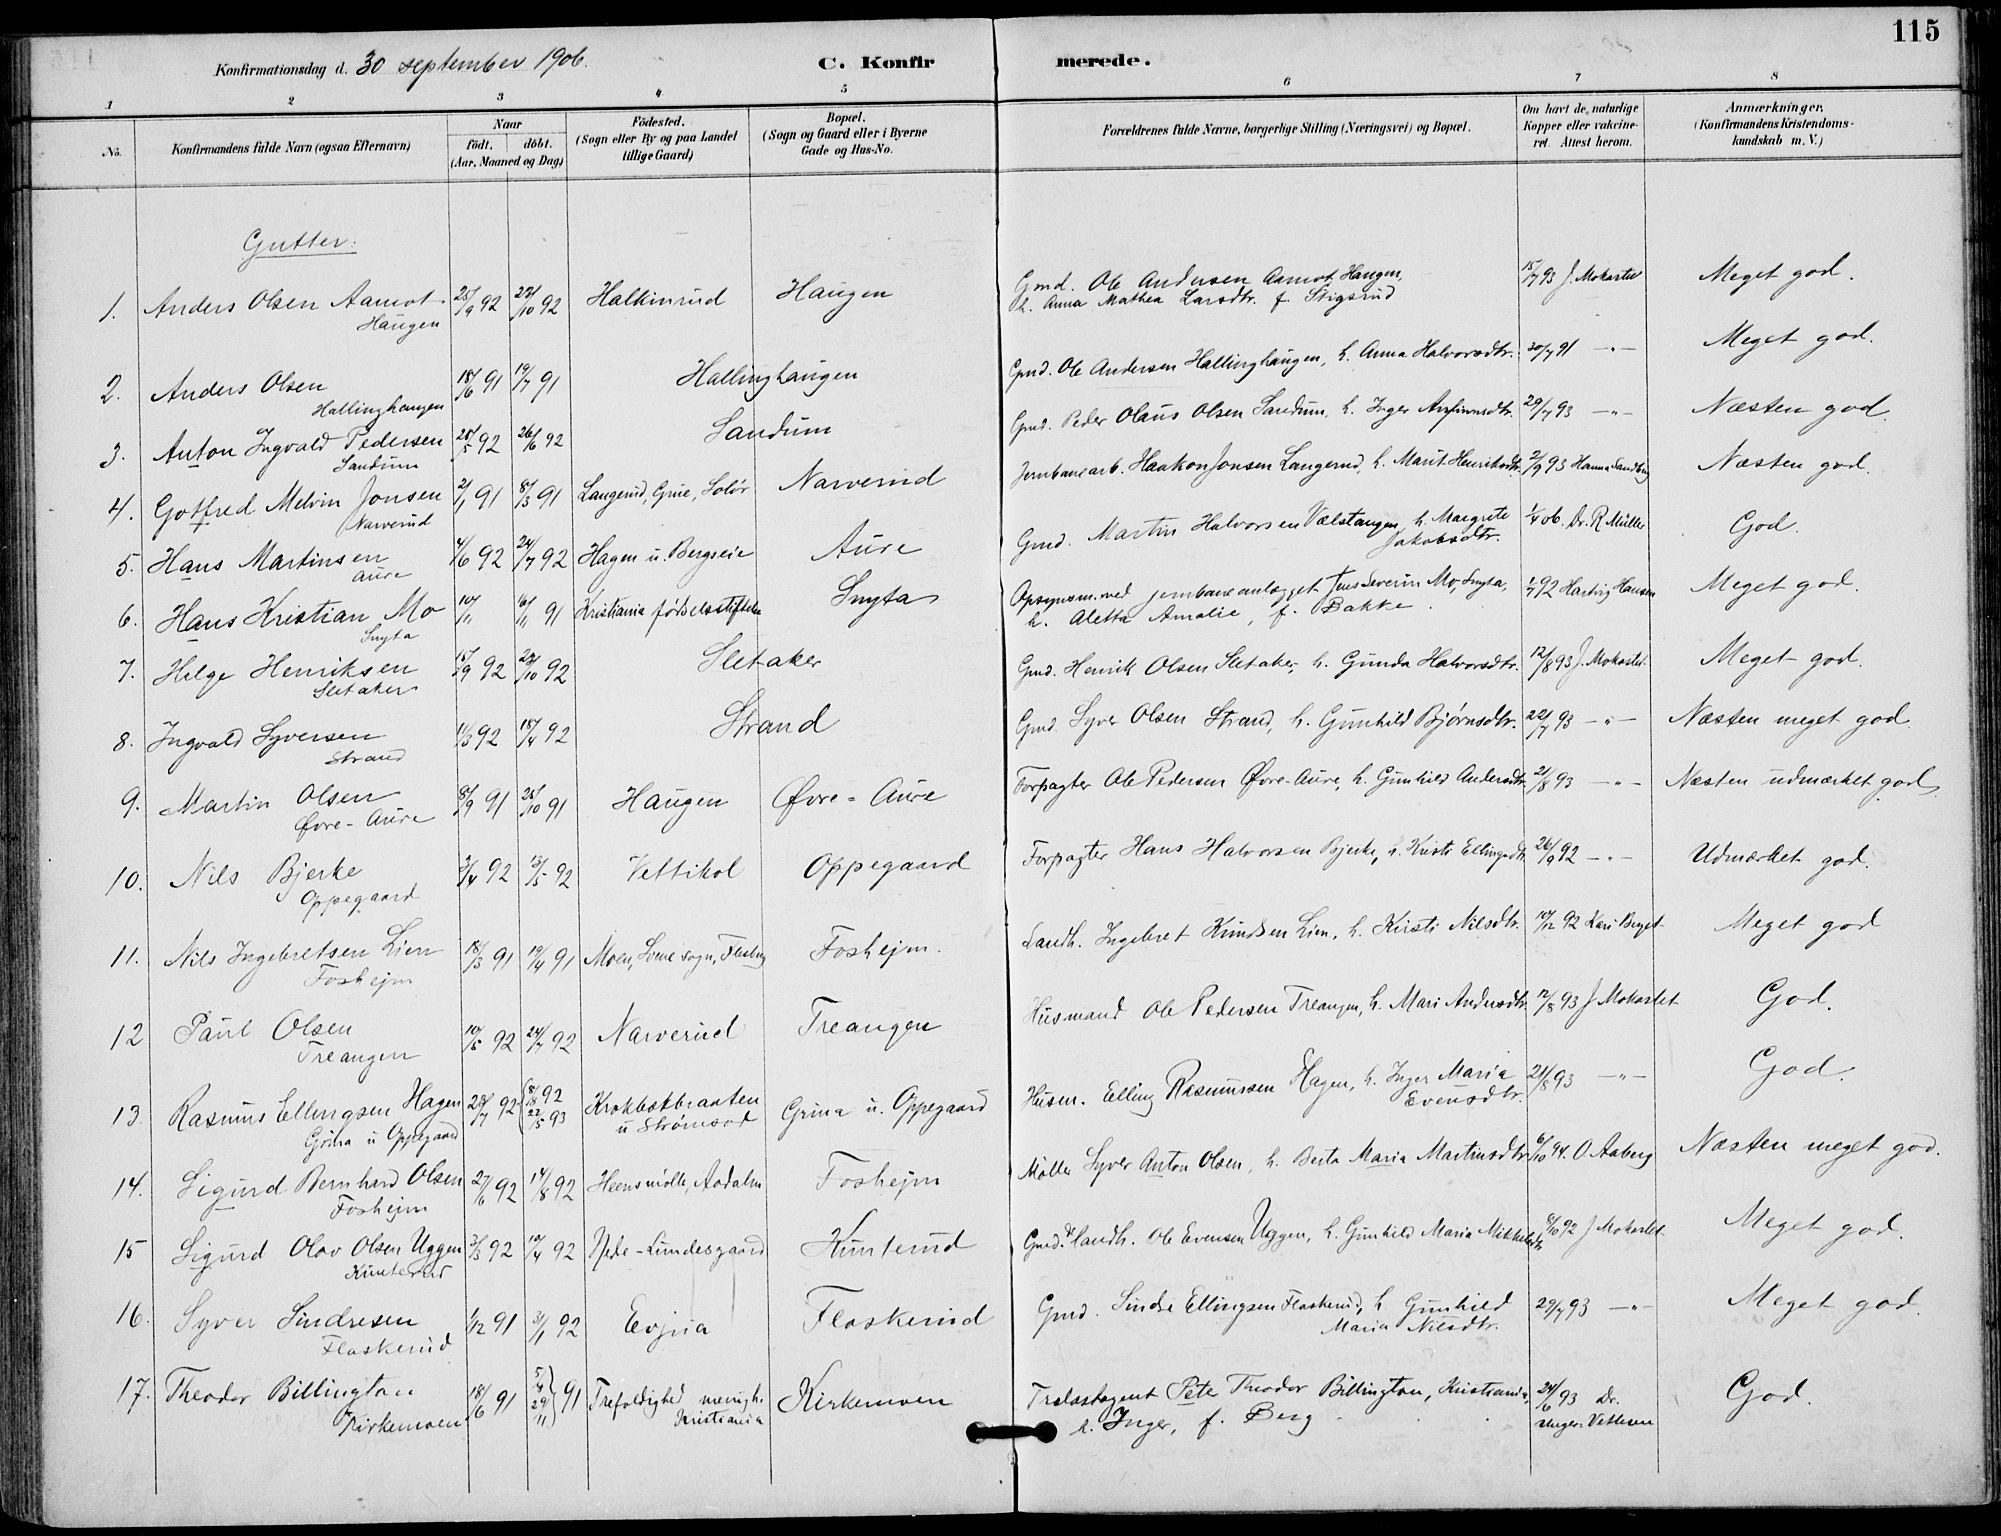 115
Konfirmationsdag d. 30 september 1906.
C. Konfirmerede.
1 2 3 4 5 6 7 8
No.
Konfirmandens fulde Navn (ogsaa Efternavn)
Naar
födt. döbt.
(Aar, Maaned og Dag)
Födested.
(Sogn eller By og paa Landet
tillige Gaard)
Bopæl.
(Sogn og Gaard eller i Byerne
Gade og Hus-No.
Forældrenes fulde Navne, borgerlige Stilling (Næringsvei) og Bopæl.
Om havt de, naturlige
Kopper eller vakcine-
ret. Attest herom.
Anmærkninger.
(Konfirmandens Kristendoms-
kundskab m. V.)
Gutter:
1. Anders Olsen Aamot 25/9 92 23/10 92 Halkinrud Haugen Gmd. Ole Andersen Aamot Haugen, 15/7 93 J. Mokastet Meget god.
Haugen h. Anna Mathea Larsdtr. f. Stigsrud
2. Anders Olsen 18/6 91 19/7 91 Hallinghaugen Gmd. Ole Andersen Hallinghaugen, h. Anna Halvorsdtr. 30/7 91 -"- Meget god.
Hallinghaugen
3. Anton Ingvald Pedersen 25/5 92 26/6 92 Sandum Gmd. Peder Olaus Olsen Sandum, h. Inger Arfinnsdtr. 29/7 93 -"- Næsten god.
Sandum
4. Gotfred Melvin Jonsen 2/1 91 8/3 91 Langerud, Grue, Solör Narverud Jernbanearb. Haakon Jonsen Langerud, h. Marit Henriksdtr. 2/9 93 Hanna Sandberg Næsten god.
Narverud
5. Hans Martinsen 4/6 92 24/7 92 Hagen u. Bergseie Aure Gmd. Martin Halvorsen Vælstangen, h. Margrete 1/4 06. Dr. R Müller God.
Aure Jakobsdtr.
6. Hans Kristian Mo 10/11 16/11 91 Kristiania fødselsstiftelse Snyta Opsynsm. ved jernbaneanlægget Jens Severin Mo, Snyta, 1/7 92 Hartvig Hansen Meget god.
Snyta h. Aletta Amalie, f. Bakke.
7. Helge Henriksen 15/9 92 23/10 92 Sletaker Gmd. Henrik Olsen Sletaker, h. Gunda Halvorsdtr. 12/8 93 J. Mokastet. Meget god.
Sletaker
8. Ingvald Syversen 11/3 92 18/4 92 Strand Gmd. Syver Olsen Strand, h. Gunhild Bjørnsdtr. 22/7 93 -"- Næsten meget god.
Strand
9. Martin Olsen 8/9 91 25/10 91 Haugen Øvre-Aure Forpagter Ole Pedersen Øvre-Aure, h. Gunhild Andersdtr. 2/8 93 -"- Næsten udmærket god.
Øvre-Aure
10. Nils Bjerke 3/4 92 13/5 92 Vettikol Oppegaard Forpagter Hans Halvorsen Bjerke, h. Kristi Ellingsdtr. 26/9 92 -"- Udmærket god.
Oppegaard
11. Nils Ingebretsen Lien 18/3 91 19/4 91 Moen, Svene sogn, Flesberg Foshejm. Landh. Ingebret Knudsen Lien, h. Kirsti Nilsdtr. 10/12 92 Kari Berget Meget god
Foshejm
12 Paul Olsen 10/5 92 24/7 92 Narverud Treangen Husmand Ole Pedersen Treangen, h. Mari Andersdtr. 12/8 93 J Mokastet God.
Treangen
13. Rasmus Ellingsen Hagen 28/7 92 8/8 92 Krokbækbraaten Grina u. Oppegaard Husm. Elling Rasmussen Hagen, h. Inger Maria 21/8 93 -"- God.
Grina u Oppegaard 22/5 93 u Strömsod Evensdtr.
14. Sigurd Bernhard Olsen 27/6 92 14/8 92 Heensmølle, Aadalen Foshejm Møller Syver Anton Olsen, h. Berta Maria Martinsdtr 6/10 94. O. Aaberg Næsten meget god.
Foshejm
15 Sigurd Olav Olsen Uggen 3/3 92 10/4 92 Nede-Lundesgaard Kunterud Gmd. & landh. Ole Evensen Uggen, h. Gunhild Maria Mikkelsdtr 8/10 92 J Mokastet. Meget god.
Kunterud
16. Syver Sindresen 1/12 91 31/1 92 Evjua Flaskerud Gmd. Sindre Ellingsen Flaskerud, h. Gunhild 29/7 93 -"- Meget god.
Flaskerud Maria Nilsdtr.
17. Theodor Billington 18/6 91 5/7 29/11 91 Trefoldighed menigh. Kirkemoen Trælastagent Pete Theodor Billington, Kristiania, 24/6 93 Dr. God.
Kirkemoen Kristiania h. Inger, f. Berg Unger-Vetlesen